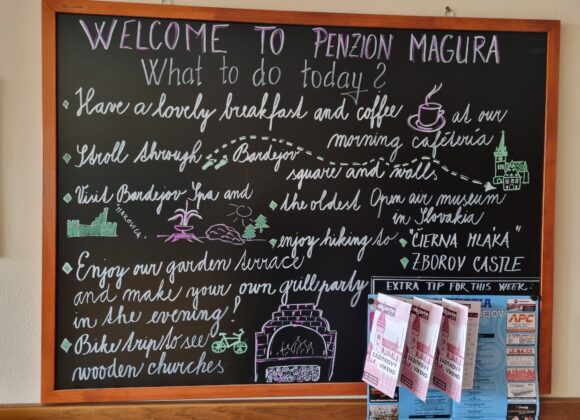 WELCOME TO PENZION MAGURA
What to do today?
Have a lovely breakfast and coffee at our
morning caféteria
Stroll through Bardejov
square and walls
Visit Bardejov Spa and
the oldest Open air museum
in Slovakia
MAKOVICA
enjoy hiking to: "ČIERNA MLÁKA"
ZBOROV CASTLE
Enjoy our garden terrace
and make your own grill party
in the evening!
Bike trip to see
wooden churches
EXTRA TIP FOR THIS WEEK:
ZÁŽITKOVÝ
VÍKEND
ZÁŽITKOVÝ
VÍKEND
ZÁŽITKOVÝ
VÍKEND
APC